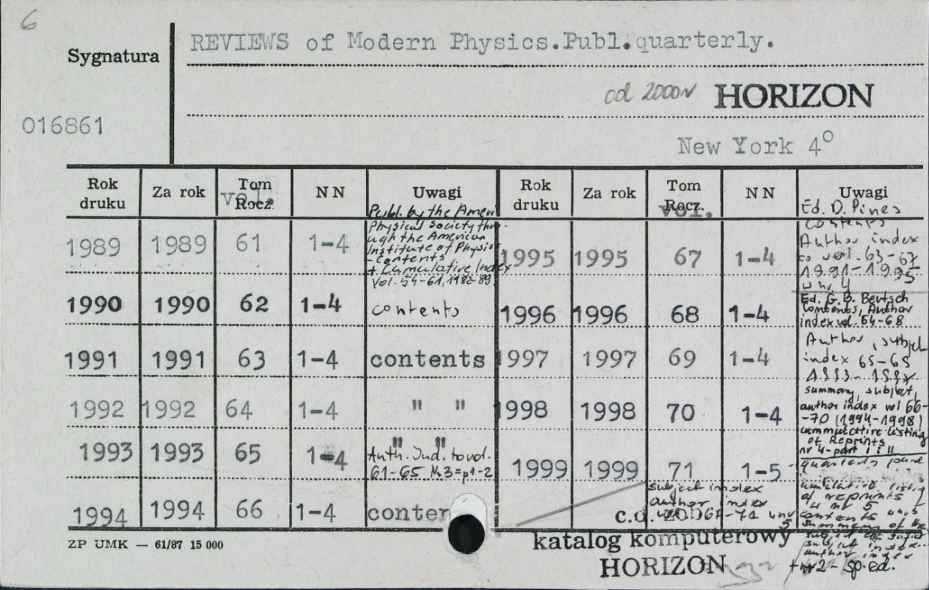 6
Sygnatura
REVIEWS of Modern Physics.Publ.quarterly.
od 2000 HORIZON
016861
New York 4°
Rok druku Za rok Tom Rocz. vol. N N Uwagi Rok druku Za rok Tom Rocz. vol. N N Uwagi
Publ. by the Amer.
Physical Society thro-
ugh the American
Institute of Physics
- Contents
+ Cumulative Index
Vol. 54-61, 1982-89.
1989 1989 61 1-4
1990 1990 62 1-4 contents
1991 1991 63 1-4 contents
1992 1992 64 1-4 " "
" "
1993 1993 65 1-4 Auth. Ind. to vol.
61-65 N.3 = p1-2
1994 1994 66 1-4 conten
Ed. D. Pines
contents
Author index
to vol. 63-67
1991-1995
w nr 4
1995 1995 67 1-4
Ed. G. B. Bertsch
Contents, Author
index vol. 64-68
1996 1996 68 1-4
Author, subject
index 65-69
1997 1997 69 1-4
summary, subject,
author index vol 66-
-70 (1994-1998)
cummulative listing
of Reprints
nr 4-part I i II
1998 1998 70 1-4
1999 1999 71 1-5
of reprints
subject index
author index
67-71 w nr
5
c.d. 2000
katalog komputerowy
HORIZON
+ nr 2 - sp. ed.
ZP UMK — 61/87 15 000